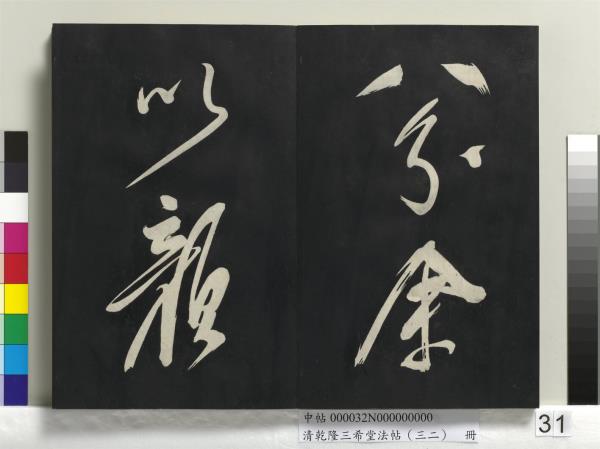 八分余
以顏
中帖 000032N000000000
清乾隆三希堂法帖（三二） 冊
31